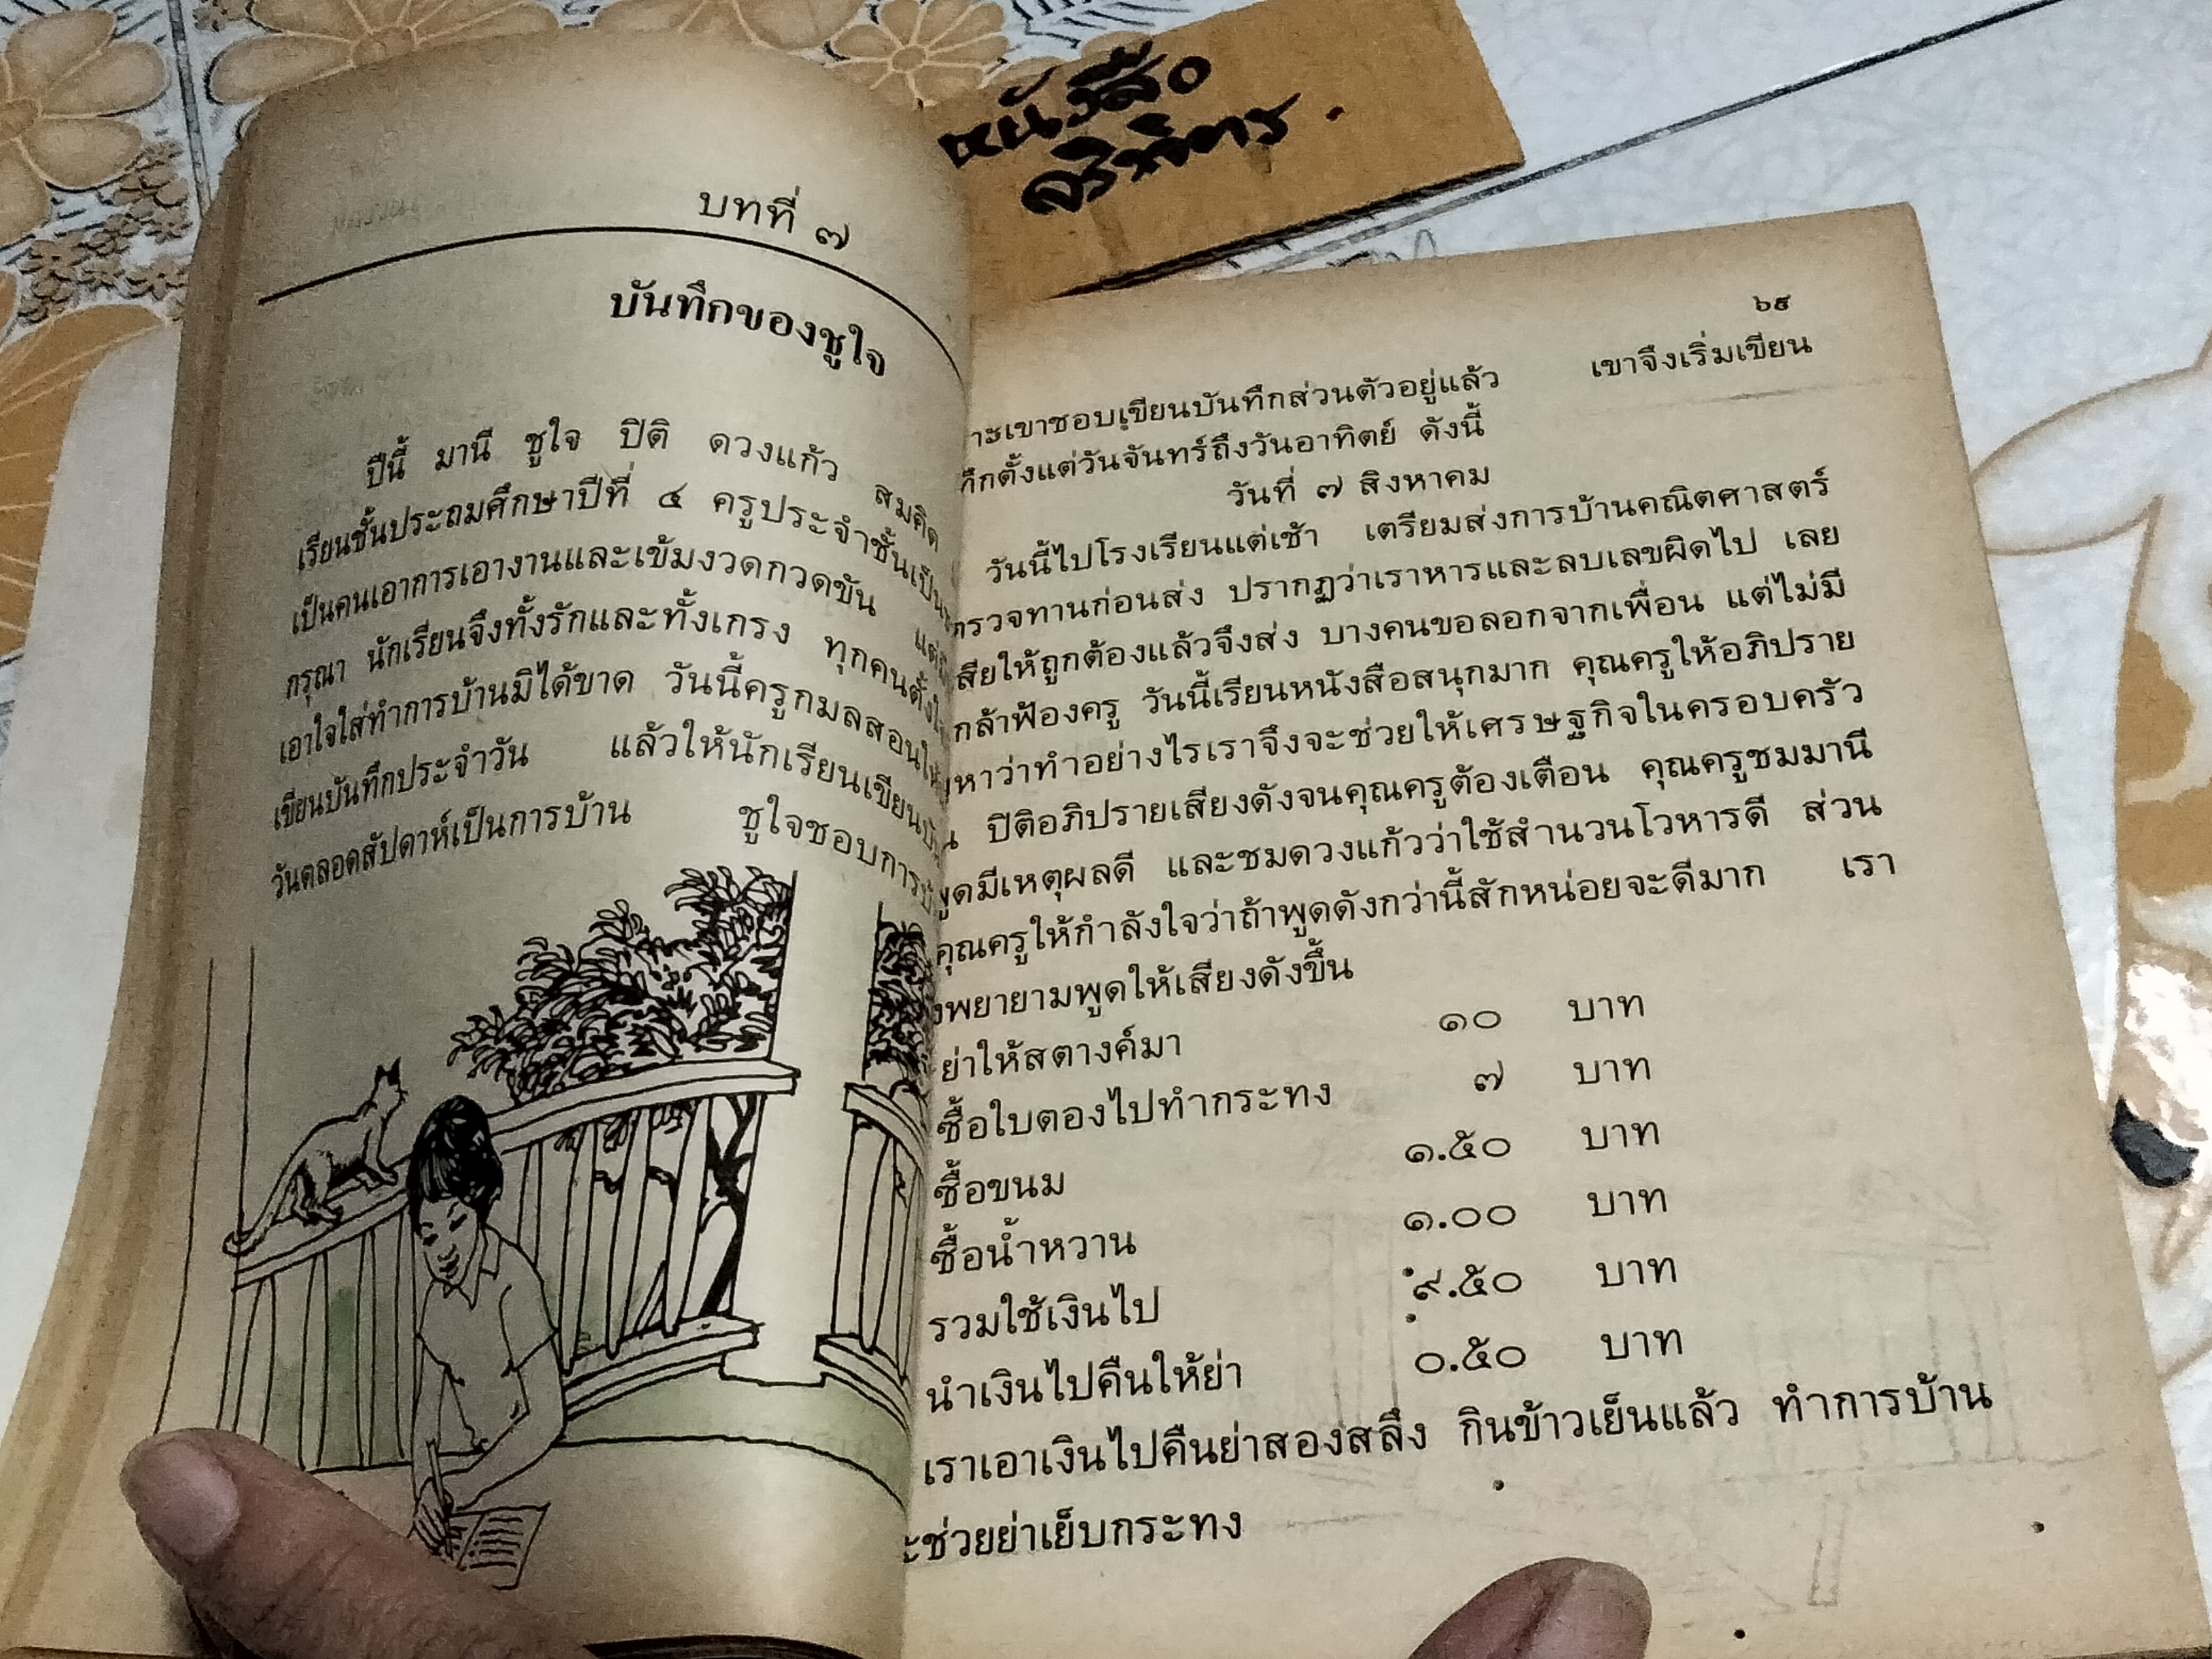 หนังสือ
บทที่ ๗
บันทึกของชูใจ
ปีนี้ มานี ชูใจ ปิติ ดวงแก้ว สมคิด
เรียนชั้นประถมศึกษาปีที่ ๔ ครูประจำชั้นเป็น
เป็นคนเอาการเอางานและเข้มงวดกวดขัน แต่
กรุณา นักเรียนจึงทั้งรักและทั้งเกรง ทุกคนตั้ง
เอาใจใส่ทำการบ้านมิได้ขาด วันนี้ครูกมลสอนให้
เขียนบันทึกประจำวัน แล้วให้นักเรียนเขียน
วันตลอดสัปดาห์เป็นการบ้าน ชูใจชอบการ
๖๙
าะเขาชอบเขียนบันทึกส่วนตัวอยู่แล้ว เขาจึงเริ่มเขียน
ทึกตั้งแต่วันจันทร์ถึงวันอาทิตย์ ดังนี้
วันที่ ๗ สิงหาคม
วันนี้ไปโรงเรียนแต่เช้า เตรียมส่งการบ้านคณิตศาสตร์
ตรวจทานก่อนส่ง ปรากฏว่าเราหารและลบเลขผิดไป เลย
เสียให้ถูกต้องแล้วจึงส่ง บางคนขอลอกจากเพื่อน แต่ไม่มี
กล้าฟ้องครู วันนี้เรียนหนังสือสนุกมาก คุณครูให้อภิปราย
หาว่าทำอย่างไรเราจึงจะช่วยให้เศรษฐกิจในครอบครัว
น ปิติอภิปรายเสียงดังจนคุณครูต้องเตือน คุณครูชมมานี
พูดมีเหตุผลดี และชมดวงแก้วว่าใช้สำนวนโวหารดี ส่วน
คุณครูให้กำลังใจว่าถ้าพูดดังกว่านี้สักหน่อยจะดีมาก เรา
งพยายามพูดให้เสียงดังขึ้น
ย่าให้สตางค์มา ๑๐ บาท
ซื้อใบตองไปทำกระทง ๗ บาท
ซื้อขนม ๑.๕๐ บาท
ซื้อน้ำหวาน ๑.๐๐ บาท
รวมใช้เงินไป ๙.๕๐ บาท
นำเงินไปคืนให้ย่า ๐.๕๐ บาท
เราเอาเงินไปคืนย่าสองสลึง กินข้าวเย็นแล้ว ทำการบ้าน
ะช่วยย่าเย็บกระทง